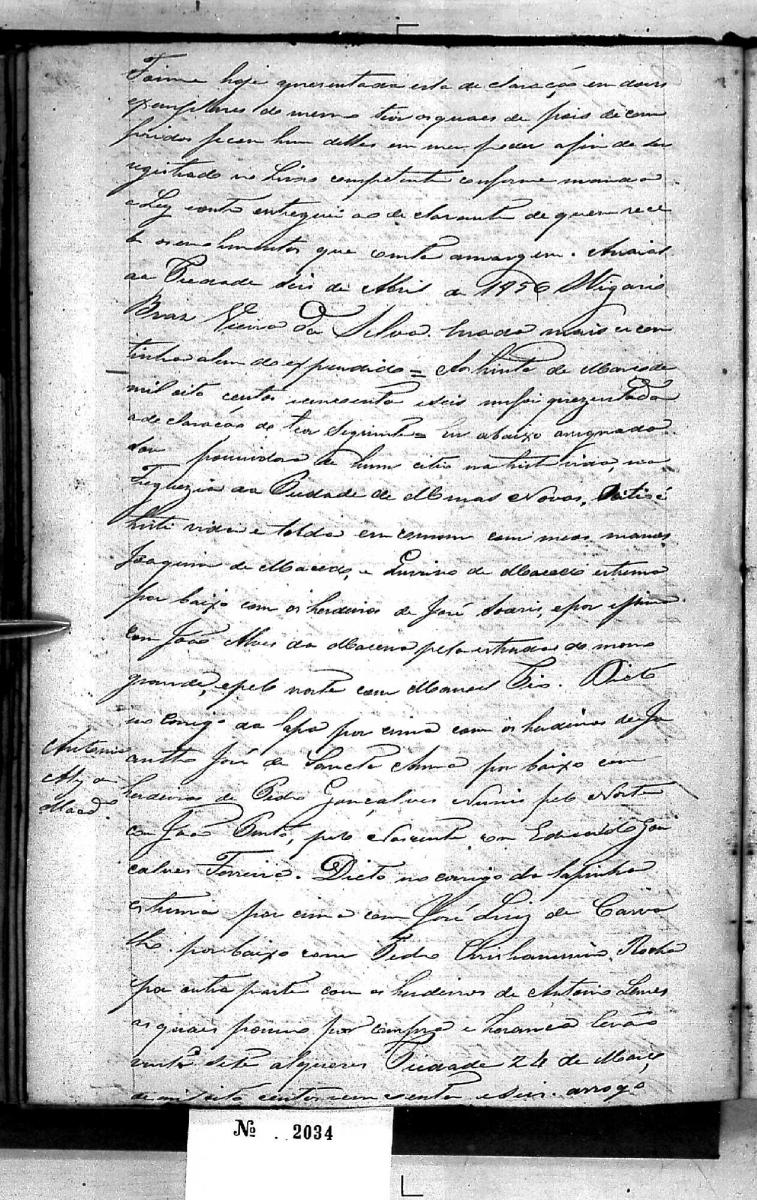 Foi me hoje apresentada esta declaração em dous
exemplares do mesmo teor os quaes de pois de con
feridos ficou hum delles em meu poder afim de ser
registrado no Livro competente conforme manda
a Ley e outro entreguei ao declarante de quem rece
bi os emolumentos que consta amargem. Arraial
da Piedade seis de Abril de 1856 O Vigario
Braz Vieira da Silva. Enada mais se con
tinha alem do expendido = Aos trinta de Março de
mil oito centos e cincoenta eseis me foi aprezentada
a declaração do teor seguinte = Eu abaixo assignado
sou possuidor de hum citio na
Freguezia da Piedade de Minas Novas,
vida e tolda em comum com meos manos
Joaquim de Macedo, e de Macedo estrema
por baixo com os herdeiros de José Soares, e por sima
com João Alves da pela estrada do morro
grande, e pelo norte com Manoel . Dicto
no Corrigo da lapa por cima com os herdeiros de Ja
cintho José de Sancta Anna por baixo com
herdeiros de Pedro Gonçalves Nunis pelo Norte
com João , pelo Nascente com Eduardo Gon
calves Ferreira. Dicto no corrigo da lapinha
estrema por cima com José Luiz de Carva
lho por baixo com Pedro Rocha
por outra parte com os herdeiros de Antonio Lemes
as quais possuo por compra e herança levão
sete alqueres Piedade 24 de Março
de mil oito centos e cincoenta eseis. arrogo
Antonio
Alz de
Macdo.
№ . 2034